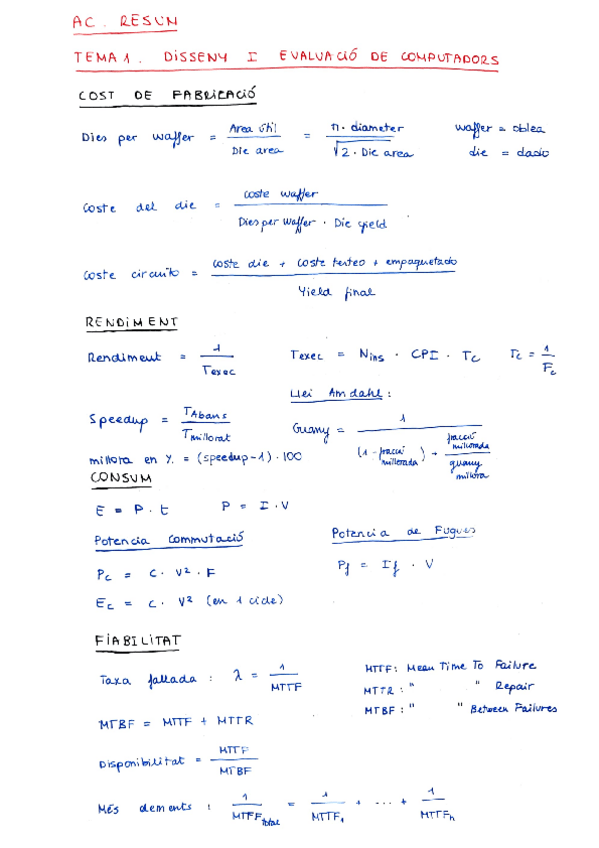 AC. RESUM
TEMA 1. DISSENY I EVALUACIÓ DE COMPUTADORS
COST DE FABRICACIÓ
Dies per waffer = Area útil / Die area = π · diameter / √2 · Die area
waffer = oblea
die = dado
Coste del die = coste waffer / Dies per waffer · Die yield
Coste circuito = coste die + coste testeo + empaquetado / Yield final
RENDIMENT
Rendiment = 1 / Texec
Texec = Nins · CPI · Tc
Tc = 1 / Fc
Llei Amdahl:
Speedup = TAbans / Tmillorat
Guany = 1 / (1 - fracció millorada) + fracció millorada / guany millora
millora en % = (speedup - 1) · 100
CONSUM
E = P · t
P = I · V
Potencia Commutació
Potencia de Fugues
Pc = C · V² · F
Pf = If · V
Ec = C · V² (en 1 cicle)
FIABILITAT
Taxa fallada : λ = 1 / MTTF
MTTF: Mean Time To Failure
MTTR : " " Repair
MTBF : " " Between Failures
MTBF = MTTF + MTTR
Disponibilitat = MTTF / MTBF
MÉS elements : 1 / MTTF total = 1 / MTTF1 + ... + 1 / MTTFn